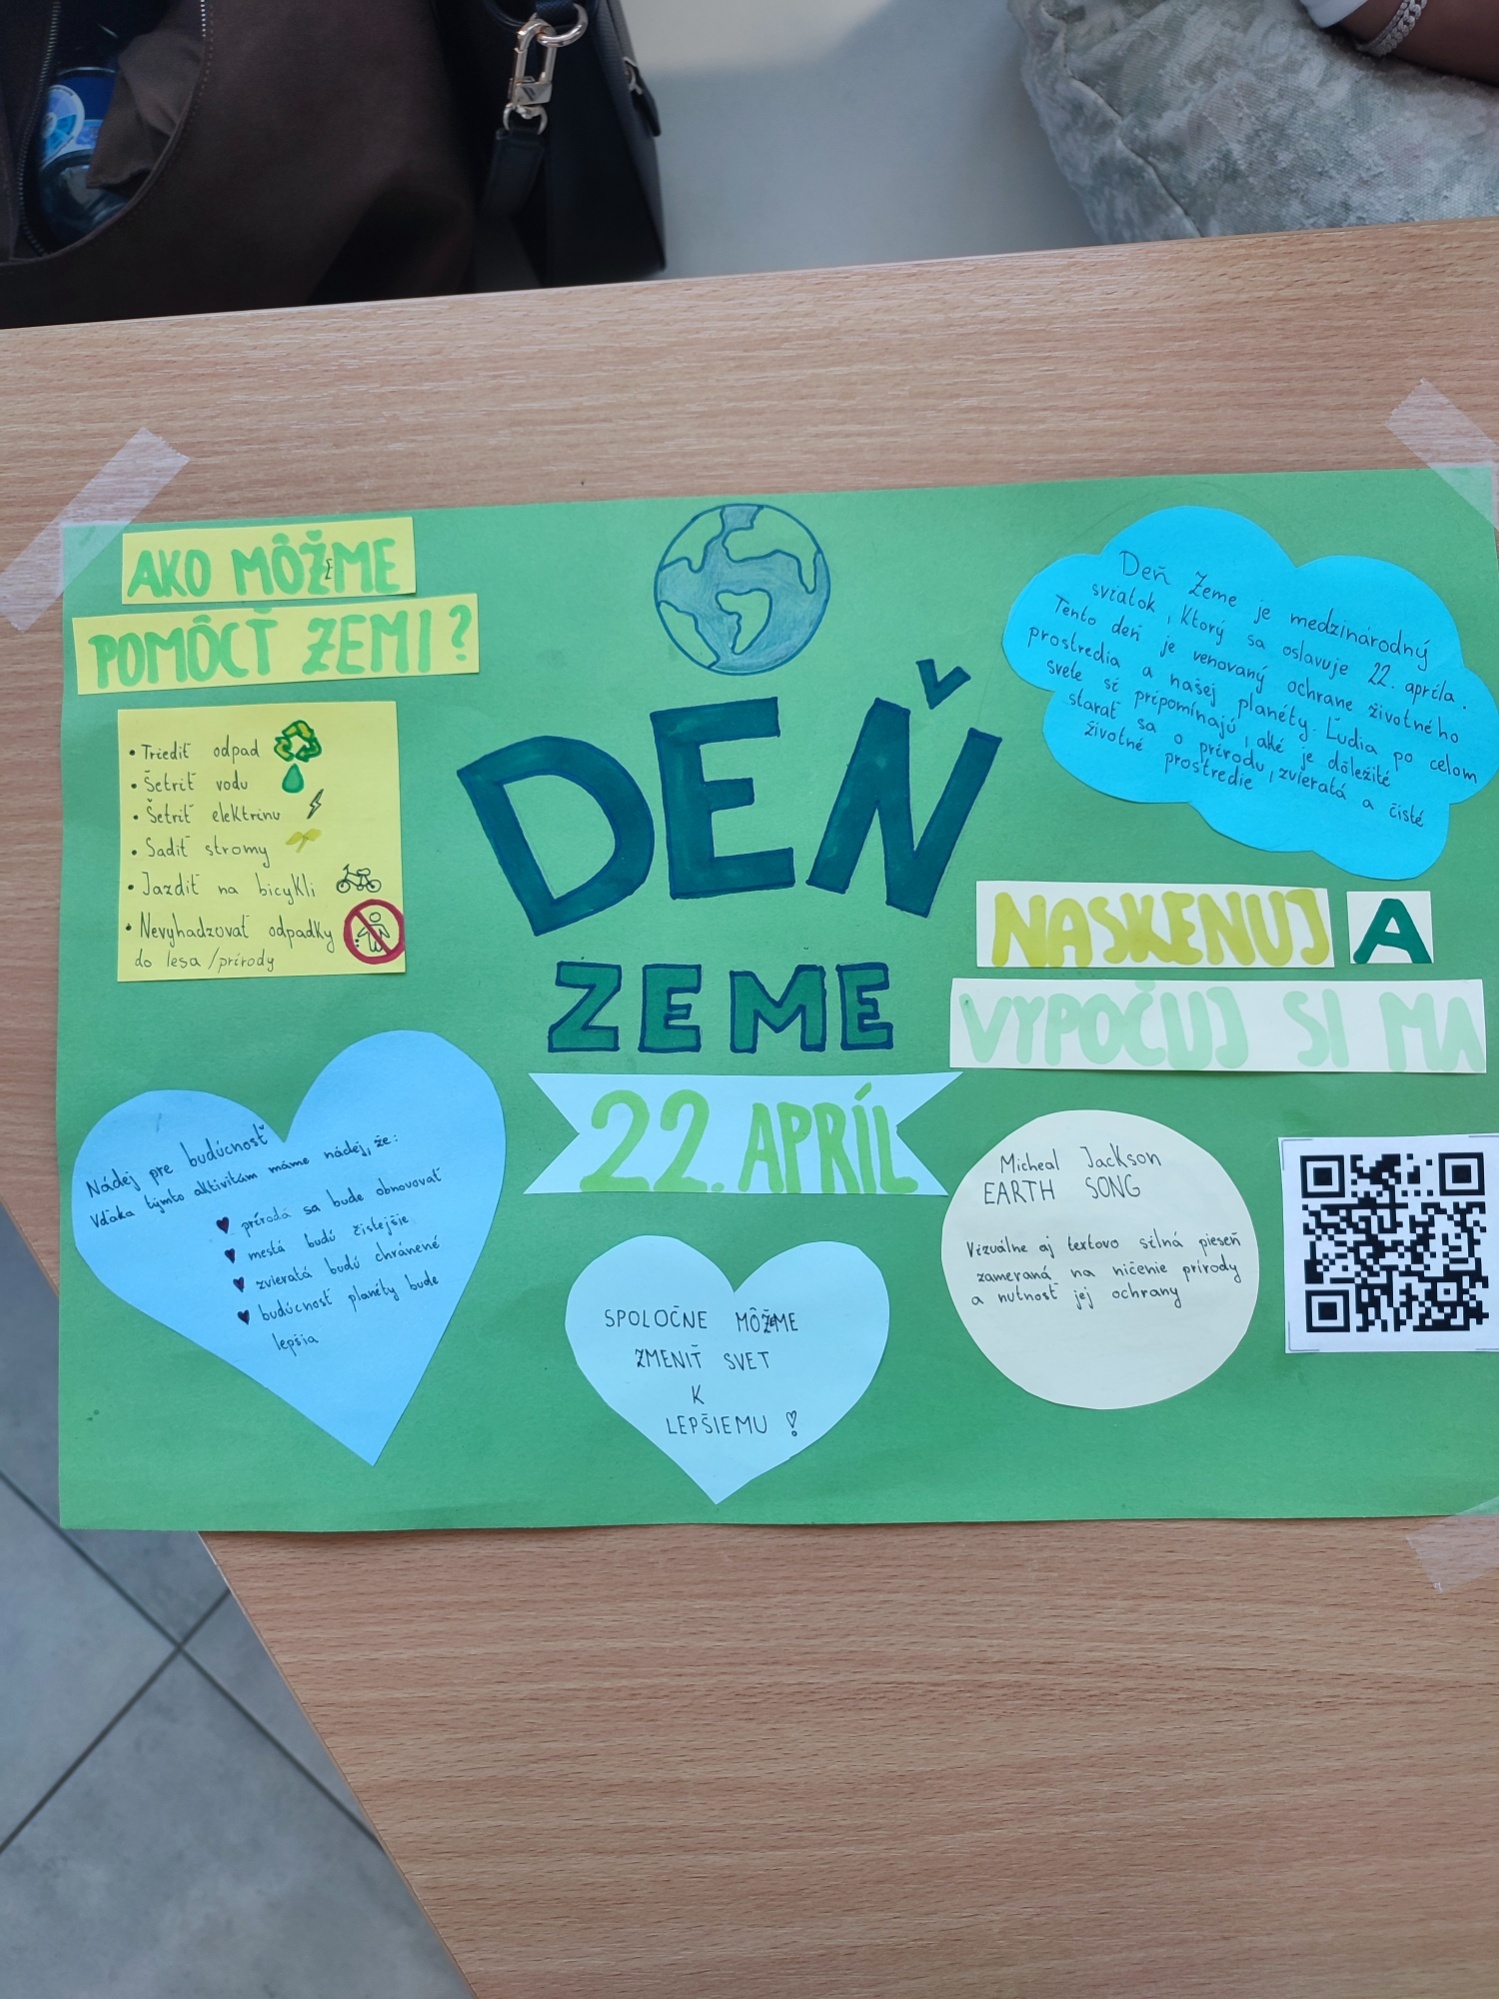 AKO MÔŽEME
POMÔCŤ ZEMI?
• Triediť odpad
• Šetriť vodu
• Šetriť elektrinu
• Sadiť stromy
• Jazdiť na bicykli
• Nevyhadzovať odpadky
do lesa /prírody
DEŇ
ZEME
22. APRÍL
Deň Zeme je medzinárodný
sviatok, ktorý sa oslavuje 22. apríla.
Tento deň je venovaný ochrane životného
prostredia a našej planéty. Ľudia po celom
svete si pripomínajú, aké je dôležité
starať sa o prírodu, zvieratá a čisté
životné prostredie
NASKENUJ A
VYPOČUJ SI MA
Nádej pre budúcnosť
Vďaka týmto aktivitám máme nádej, že:
♥ príroda sa bude obnovovať
♥ mestá budú čistejšie
♥ zvieratá budú chránené
♥ budúcnosť planéty bude
lepšia
SPOLOČNE MÔŽEME
ZMENIŤ SVET
K
LEPŠIEMU !
Micheal Jackson
EARTH SONG
Vizuálne aj textovo silná pieseň
zameraná na ničenie prírody
a nutnosť jej ochrany